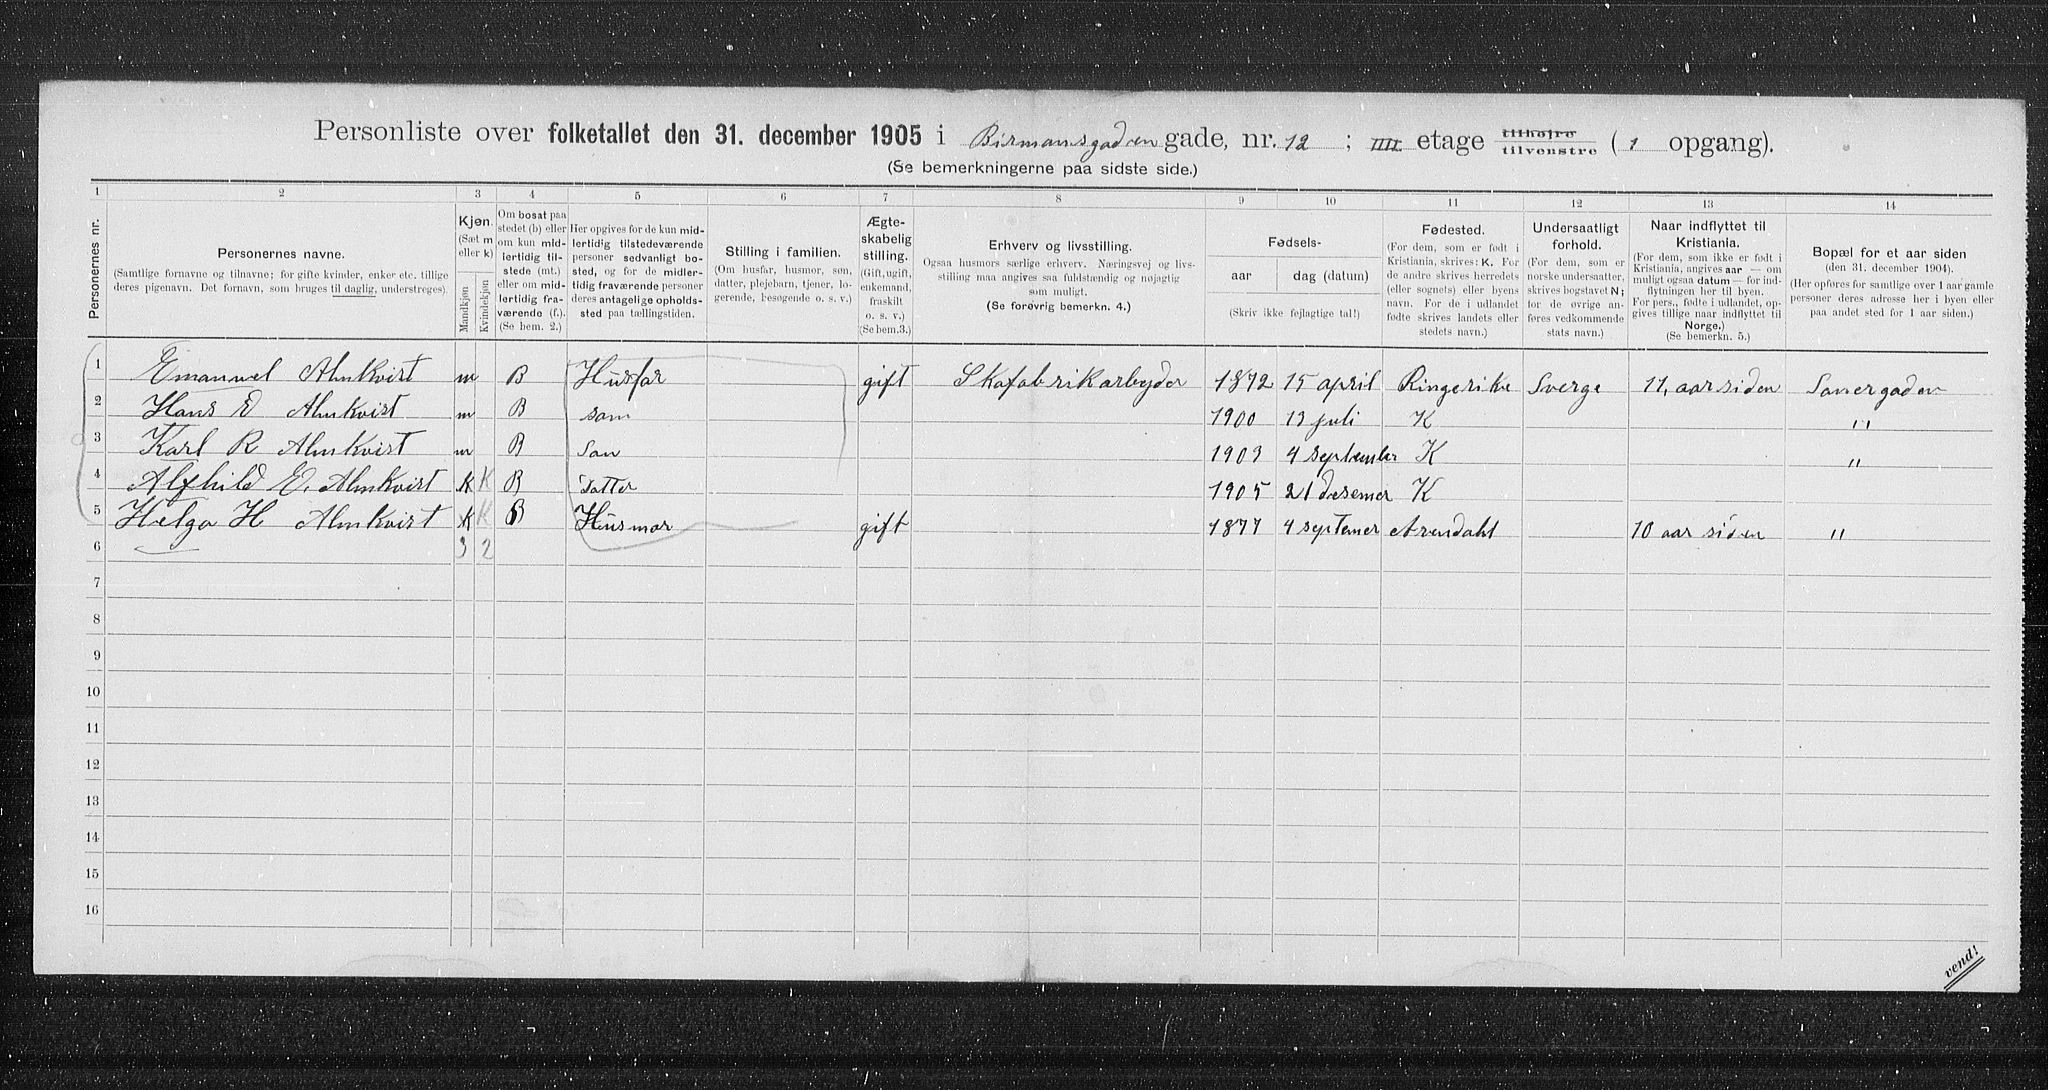 Personliste over folketallet den 31. december 1905 i Birmansgaden gade, nr. 12 ; IIII etage tilhøjre tilvenstre ( 1 opgang).
(Se bemerkningerne paa sidste side.)
1 2 3 4 5 6 7 8 9 10 11 12 13 14
Personernes nr.
Personernes navne.
(Samtlige fornavne og tilnavne; for gifte kvinder, enker etc. tillige
deres pigenavn. Det fornavn, som bruges til daglig, understreges).
Kjøn.
(Sæt m
eller k)
Mandkjøn
Kvindekjøn
Om bosat paa
stedet (b) eller
om kun mid-
lertidig til-
stede (mt.)
eller om mid-
lertidig fra-
værende (f.).
(Se bem. 2.)
Her opgives for de kun mid-
lertidig tilstedeværende
personer sedvanlig bo-
sted, og for de midler-
tidig fraværende personer
deres antagelige opholds-
sted paa tællingstiden.
Stilling i familien.
(Om husfar, husmor, søn,
datter, plejebarn, tjener, lo-
gerende, besøgende o. s. v.)
Ægte-
skabelig
stilling.
(Gift, ugift,
enkemand,
fraskilt
o. s. v.)
(Se bem.3.)
Erhverv og livsstilling.
Ogsaa husmors særlige erhverv. Næringsvej og livs-
stilling maa angives saa fuldstændig og nøjagtig
som muligt.
(Se forøvrig bemerkn. 4.)
Fødsels-
aar dag (datum)
(Skriv ikke fejlagtige tal!)
Fødested.
(For dem, som er født i
Kristiania, skrives: K. For
de andre skrives herredets
(eller sognets) eller byens
navn. For de i udlandet
fødte skrives landets eller
stedets navn.)
Undersaatligt
forhold.
(For dem, som er
norske undersaatter,
skrives bogstavet N;
for de øvrige an-
føres vedkommende
stats navn.)
Naar indflyttet til
Kristiania.
(For dem, som ikke er født i
Kristiania, angives aar — om
muligt ogsaa datum — for ind-
flytningen her til byen.
For pers., fødte i udlandet, op-
gives tillige naar indflyttet til
Norge.)
(Se bemerkn. 5.)
Bopæl for et aar siden
(den 31. december 1904).
(Her opføres for samtlige over 1 aar gamle
personer deres adresse her i byen eller
paa andet sted for 1 aar siden.)
1 Emanuel Almkvist m B Husfar gift Skofabrikarbyder 1872 15 april Ringerike Sverge 11, aar siden Sanergaden
2 Hans E Almkvist m B søn 1900 13 juli K "
3 Karl R Almkvist m B Søn 1903 4 september K "
4 Alfhild E. Almkvist K K B Datter 1905 21 desemer K
5 Helga H Almkvist K K B Husmor gift 1877 4 septemer Arendahl 10 aar siden "
6 3 2
7
8
9
10
11
12
13
14
15
16
vend!